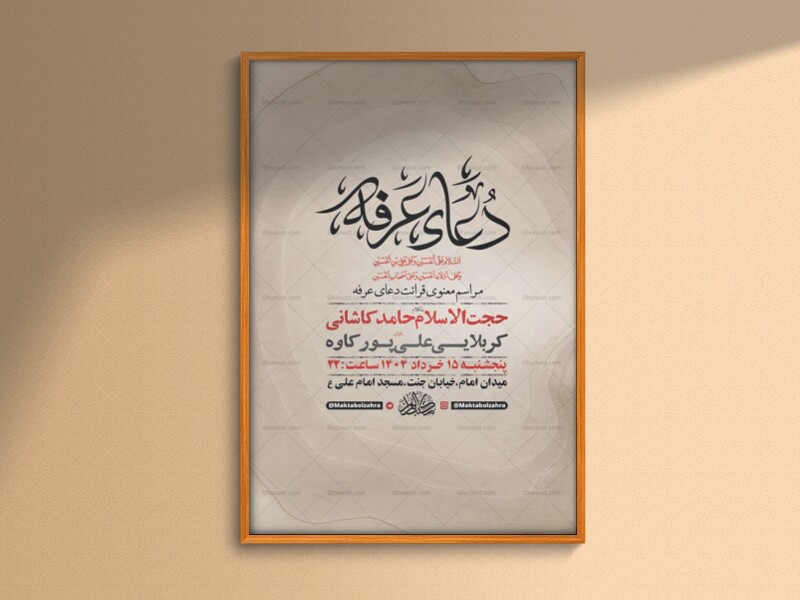 دُعای عرفه
السَّلامُ عَلَی الْحُسَیْنِ وَ عَلی عَلِیِّ بْنِ الْحُسَیْنِ
وَ عَلی اَوْلادِ الْحُسَیْنِ وَ عَلی اَصْحابِ الْحُسَیْنِ
مراسم معنوی قرائت دعای عرفه
حجت الاسلام حامد کاشانی
کربلایی علی پور کاوه
پنجشنبه ۱۵ خرداد ۱۴۰۴ ساعت: ۲۲
میدان امام،خیابان جنت،مسجد امام علی ع
@Maktabolzahra @Maktabolzahra